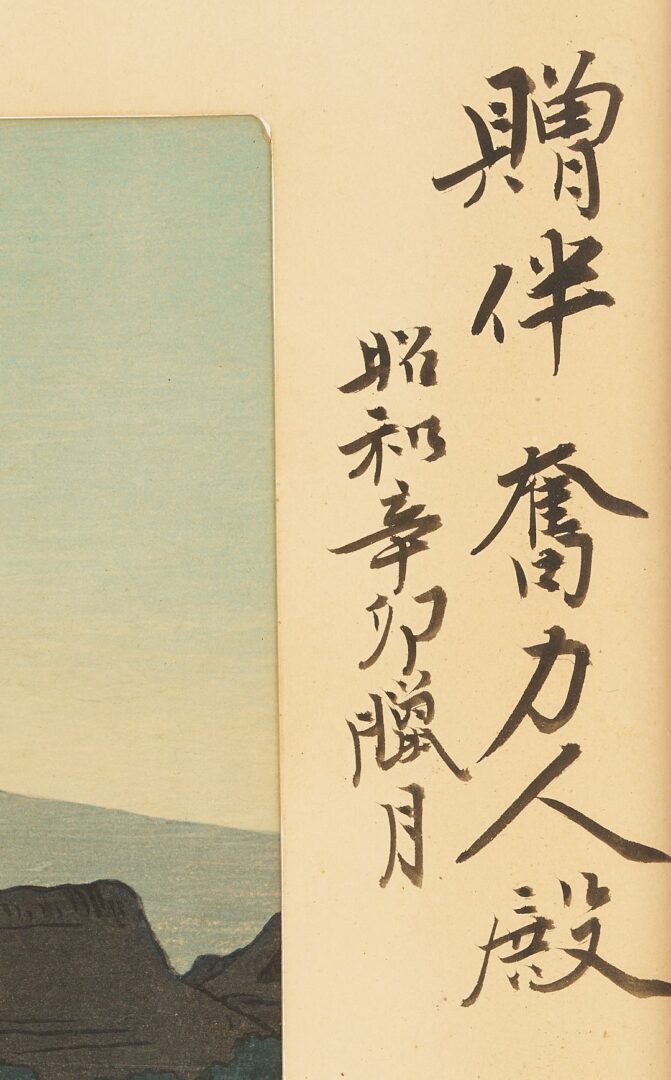 贈伴 奮力人殿
昭和辛卯臘月